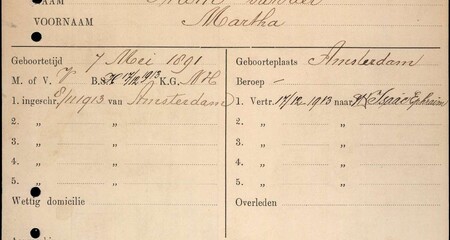 NAAM van der
VOORNAAM Martha
Geboortetijd 7 Mei 1891
Geboorteplaats Amsterdam
M. of V. V B.S. H 17/12 1913 K.G. NH
Beroep -
1. ingeschr. 8/11 1913 van Amsterdam
1. Vertr. 17/12 1913 naar Isaac Ephraim
2. „ „
2. „ „
3. „ „
3. „ „
4. „ „
4. „ „
5. „ „
5. „ „
Wettig domicilie
Overleden